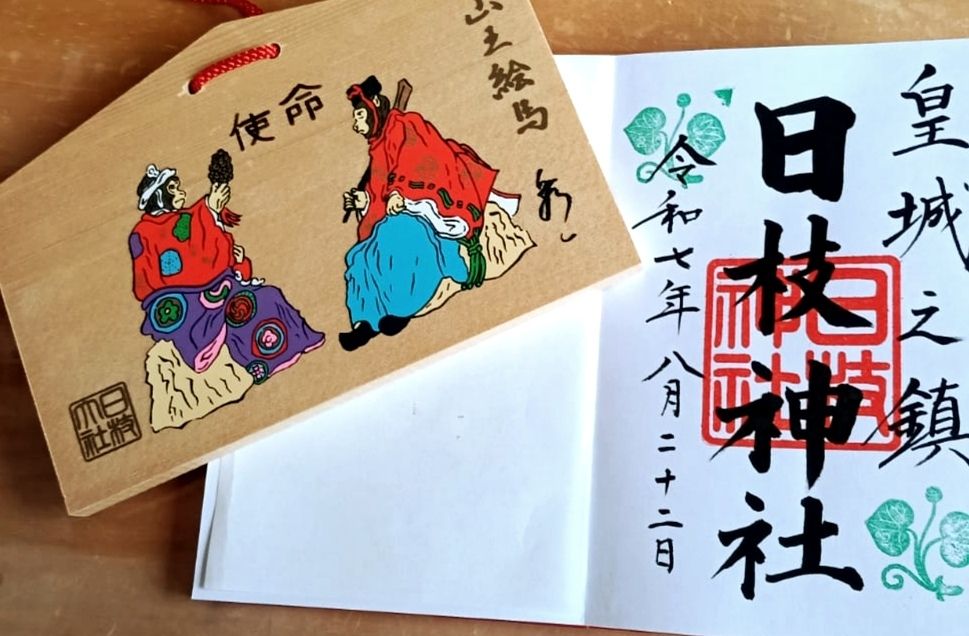 山王絵馬
使命
日枝
大社
皇城之鎮
日枝神社
日枝
神社
令和七年八月二十二日